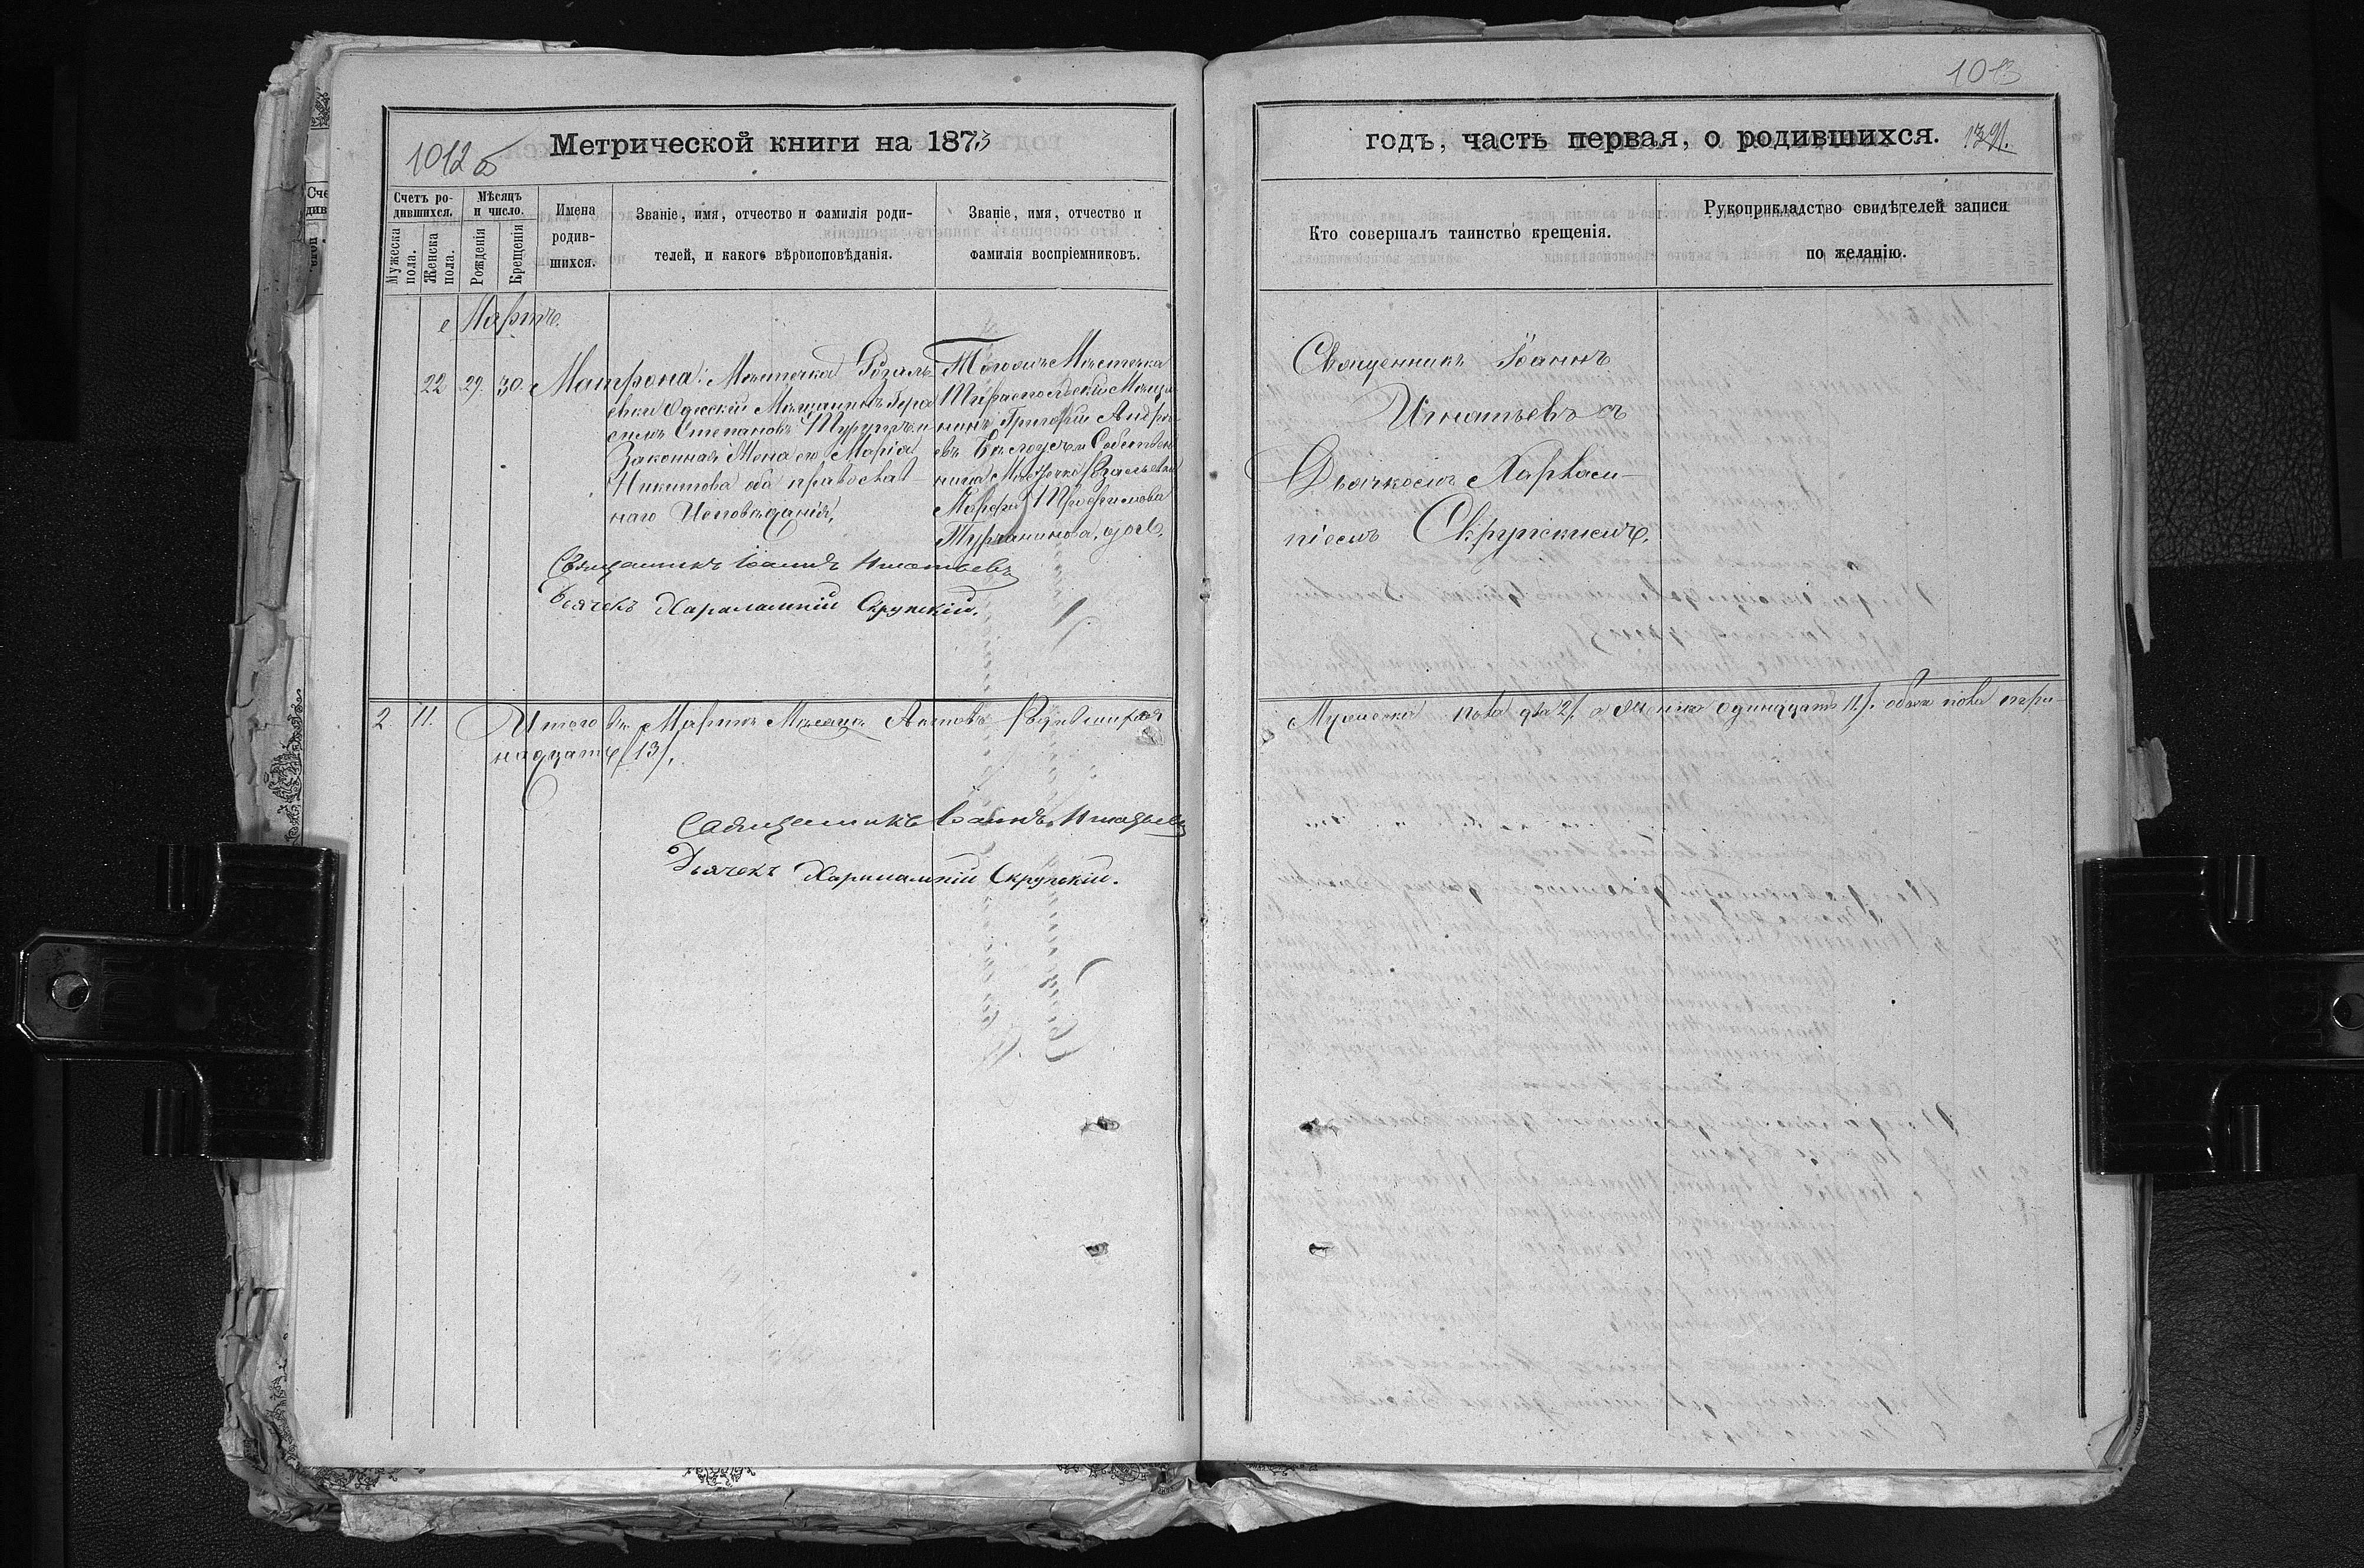 1012 б
Метрической книги на 1873
Счетъ ро-
дившихся.
Мѣсяцъ
и число.
Мужеска
пола.
Женска
пола.
Рожденія
Крещенія
Имена
родив-
шихся.
Званіе, имя, отчество и фамилія роди-
телей, и какого вѣроисповѣданія.
Званіе, имя, отчество и
фамилія воспріемниковъ.
Мартъ.
22 29. 30. Матрона:
Мѣстечка Розаль-
евки Одесскій Мѣщанинъ
Степановъ
Законная Жена его Марія
Никитова оба православ-
наго Исповѣданія,
Тогожъ Мѣстечка
Тираспольскій Мѣща-
нинъ Григорій Андре-
евъ
Трофимова
Священникъ Іоаннъ Игнатьевъ
Дьячекъ Харалампій Скрупскій.
2. 11. Итого въ Мартѣ Мѣсяцѣ Актовъ Родившихся
надцать /13/.
Священникъ Іоаннъ Игнатьевъ
Дьячекъ Харалампій Скрупскій.
1013
годъ, часть первая, о родившихся.
Кто совершалъ таинство крещенія.
Рукоприкладство свидѣтелей записи
по желанію.
Священникъ Іоаннъ
Игнатьевъ съ
Дьячкомъ Харлам-
піемъ Скрупскимъ.
Мужеска пола два 2/. а Женска Одинадцать 11./. обоего пола три-